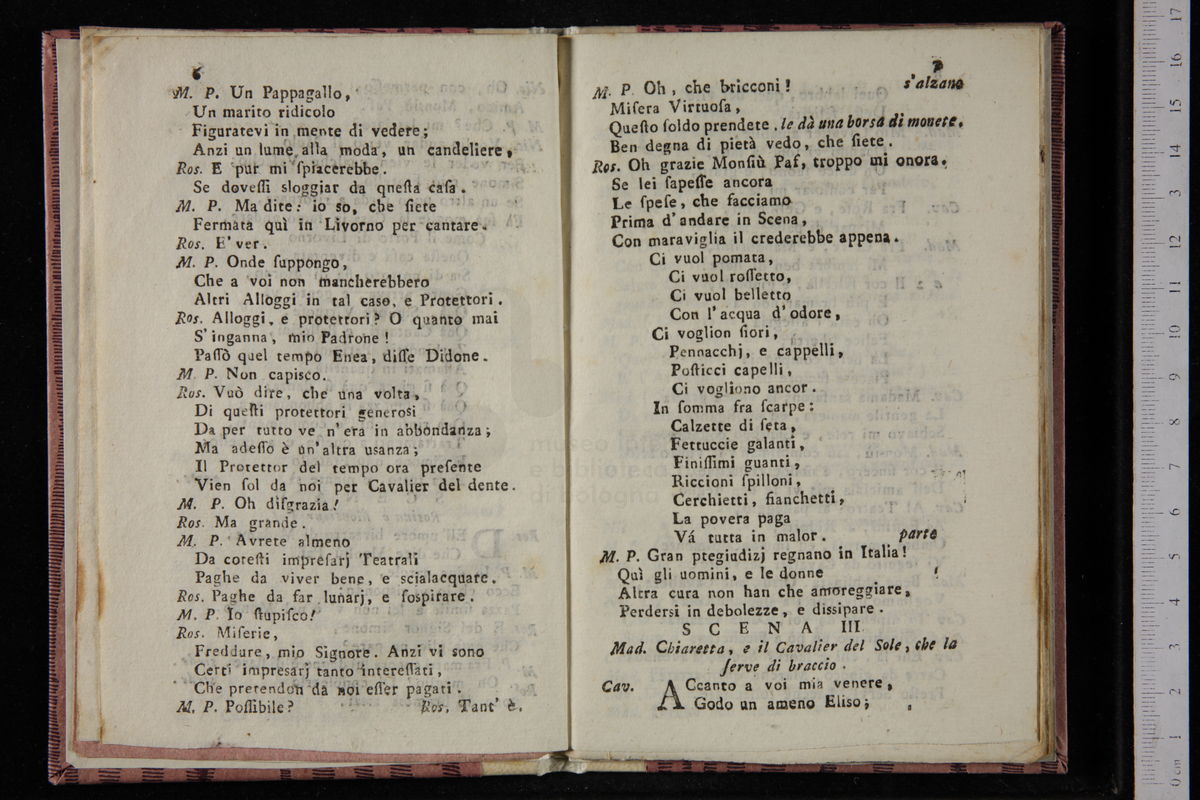 6
M. P. Un Pappagallo,
Un marito ridicolo
Figuratevi in mente di vedere;
Anzi un lume alla moda, un candeliere,
Ros. E pur mi ſpiacerebbe.
Se doveſſi sloggiar da qneſta caſa.
M. P. Ma dite: io so, cbe ſiete
Fermata quì in Livorno per cantare.
Ros. E' ver.
M. P. Onde ſuppongo,
Che a voi non mancherebbero
Altri Alloggi in tal caso, e Protettori.
Ros. Alloggi, e protettori? O quanto mai
S'inganna, mio Padrone!
Paſſò quel tempo Enea, diſſe Didone.
M. P. Non capisco.
Ros. Vuò dire, che una volta,
Di queſti protettori generosi
Da per tutto ve n'era in abbondanza;
Ma adeſſo è un'altra usanza;
Il Protettor del tempo ora preſente
Vien ſol da noi per Cavalier del dente.
M. P. Oh diſgrazia!
Ros. Ma grande.
M. P. Avrete almeno
Da coteſti impreſarj Teatrali
Paghe da viver bene, e scialacquare.
Ros. Paghe da far lunarj, e ſospirare.
M. P. Io ſtupiſco!
Ros. Miſerie,
Freddure, mio Signore. Anzi vi sono
Certi impresarj tanto intereſſati,
Che pretendon da noi eſſer pagati.
M. P. Poſſibile?
Ros. Tant' è.
7
M. P. Oh, che bricconi! s'alzano
Miſera Virtuoſa,
Queſto ſoldo prendete. le dà una borsa di monete.
Ben degna di pietà vedo, che ſiete.
Ros. Oh grazie Monſiù Paf, troppo mi onora.
Se lei ſapeſſe ancora
Le ſpeſe, che facciamo
Prima d'andare in Scena,
Con maraviglia il crederebbe appena.
Ci vuol pomata,
Ci vuol roſſetto,
Ci vuol belletto
Con l'acqua d'odore,
Ci voglion fiori,
Pennacchj, e cappelli,
Poſticci capelli,
Ci vogliono ancor.
In ſomma fra ſcarpe:
Calzette di ſeta,
Fettuccie galanti,
Finiſſimi guanti,
Riccioni ſpilloni,
Cerchietti, fianchetti,
La povera paga
Vá tutta in malor. parte
M. P. Gran ptegiudizj regnano in Italia!
Quì gli uomini, e le donne
Altra cura non han che amoreggiare,
Perdersi in debolezze, e dissipare.
SCENA III.
Mad. Chiaretta, e il Cavalier del Sole, che la
ſerve di braccio.
Cav. ACcanto a voi mia venere,
Godo un ameno Eliso;